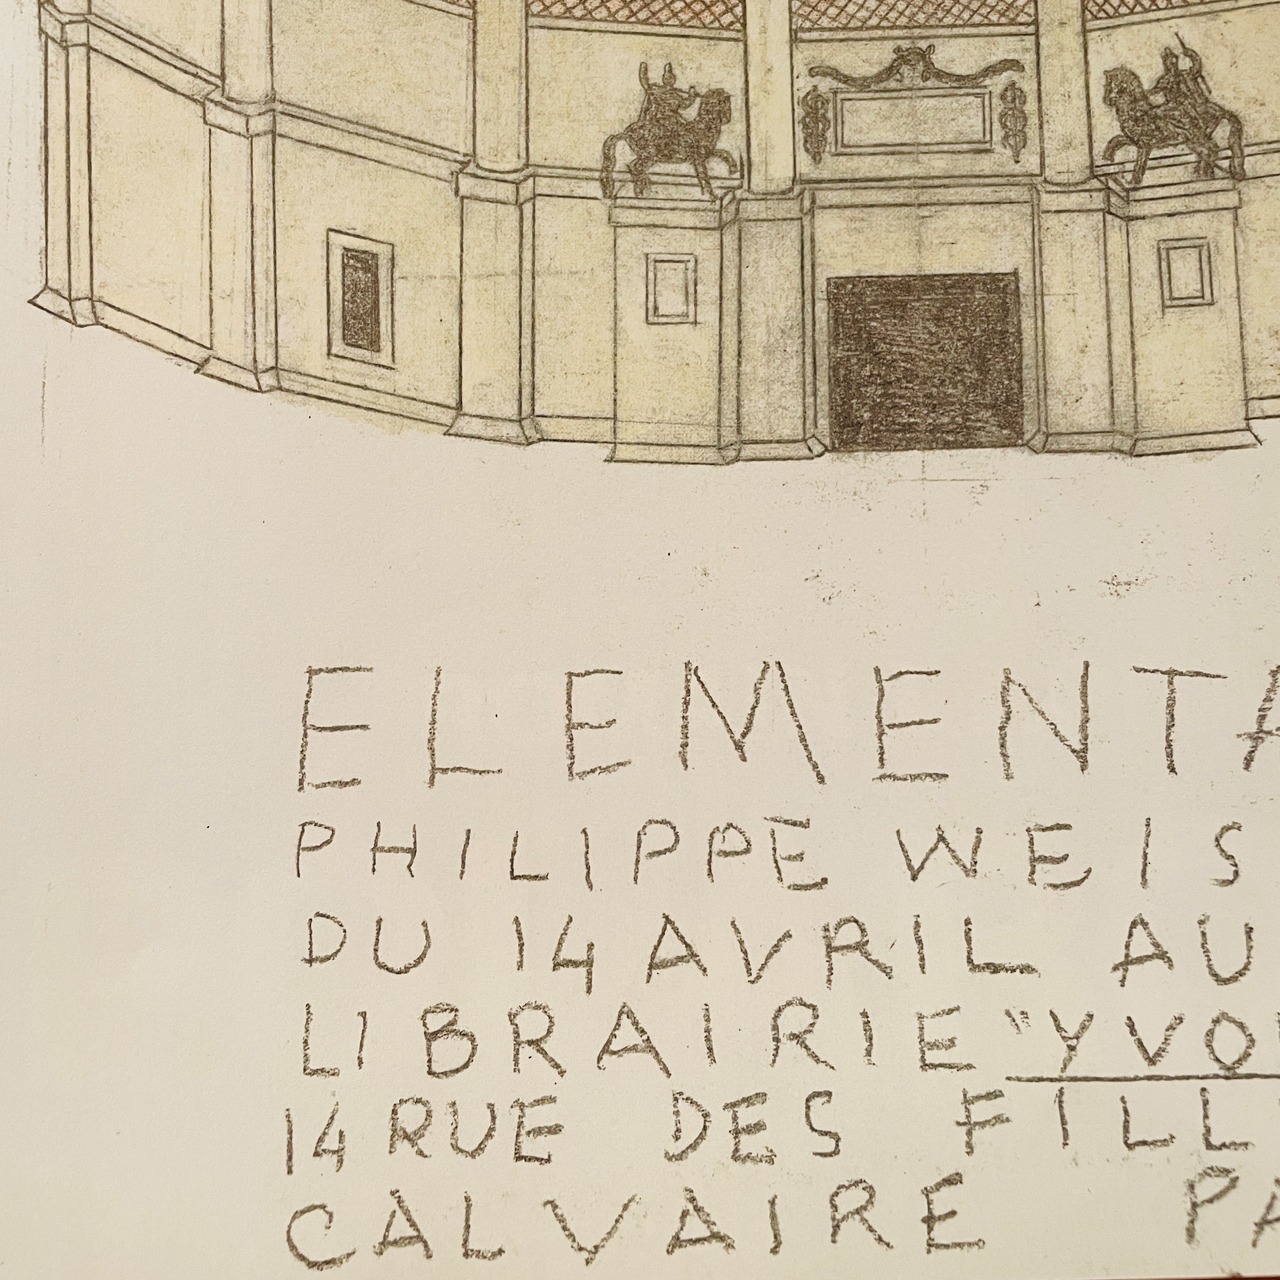 ELEMENTA
PHILIPPE WEIS
DU 14 AVRIL AU
LIBRAIRIE "YVO
14 RUE DES FILL
CALVAIRE PA